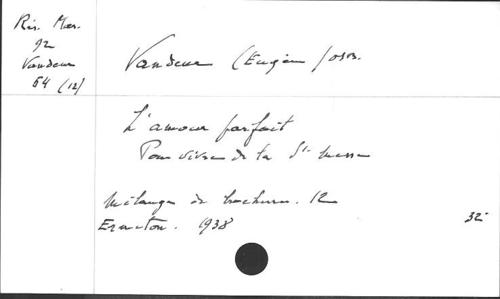 Ris. Mas.
92
Vandeur
64 (12)
Vandeur (Eugène) OSB.
L'amour parfait
Pour vivre de la Ste messe
Mélanges de brochures. 12
Ermeton. 1938
32